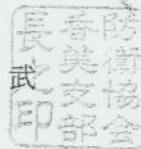 防衛協会
香美支部
長之印
武